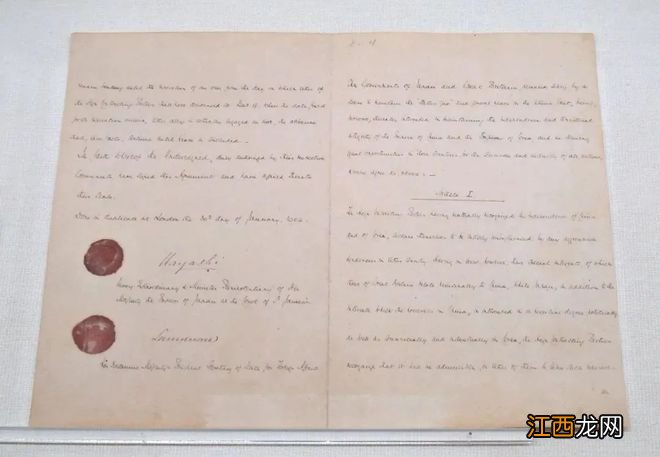 remain binding until the expiration of one year from the day on which either of
the High Contracting Parties shall have denounced it. But if, when the date fixed
for its expiration arrives, either ally is actually engaged in war, the alliance
shall, ipso facto, continue until peace is concluded.
In faith whereof the Undersigned, duly authorized by their respective
Governments have signed this Agreement and have affixed thereto
their Seals.
Done in duplicate at London the 30th day of January, 1902.
Hayashi
Envoy Extraordinary & Minister Plenipotentiary of His
Majesty the Emperor of Japan at the Court of St James's
Lansdowne
His Britannic Majesty's Principal Secretary of State for Foreign Affairs
The Governments of Japan and Great Britain, actuated solely by a
desire to maintain the status quo and general peace in the extreme East, being
moreover specially interested in maintaining the independence and territorial
integrity of the Empire of China and the Empire of Corea, and in securing
equal opportunities in those countries for the commerce and industry of all nations,
hereby agree as follows:—
Article I.
The High Contracting Parties having mutually recognized the independence of China
and of Corea, declare themselves to be entirely uninfluenced by any aggressive
tendencies in either country. Having in view, however, their special interests of which
those of Great Britain relate principally to China, while Japan, in addition to the
interests which she possesses in China, is interested in a peculiar degree politically
as well as commercially and industrially in Corea, the High Contracting Parties
recognize that it will be admissible for either of them to take such measures
江西龙网